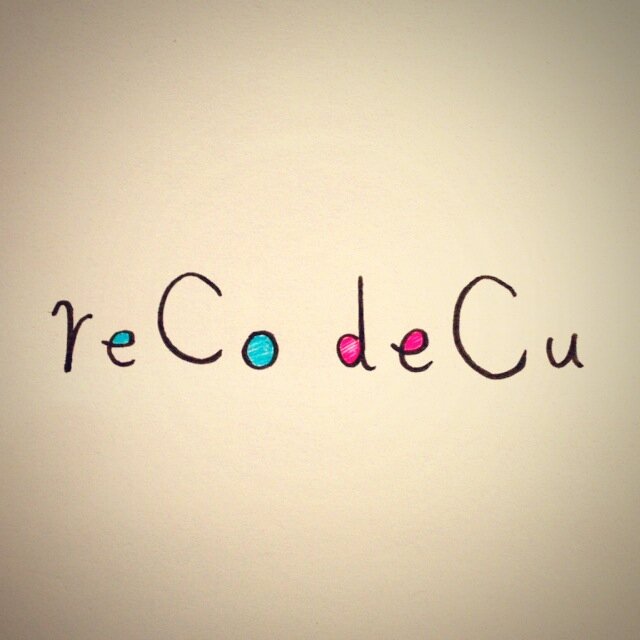 reCo deCu